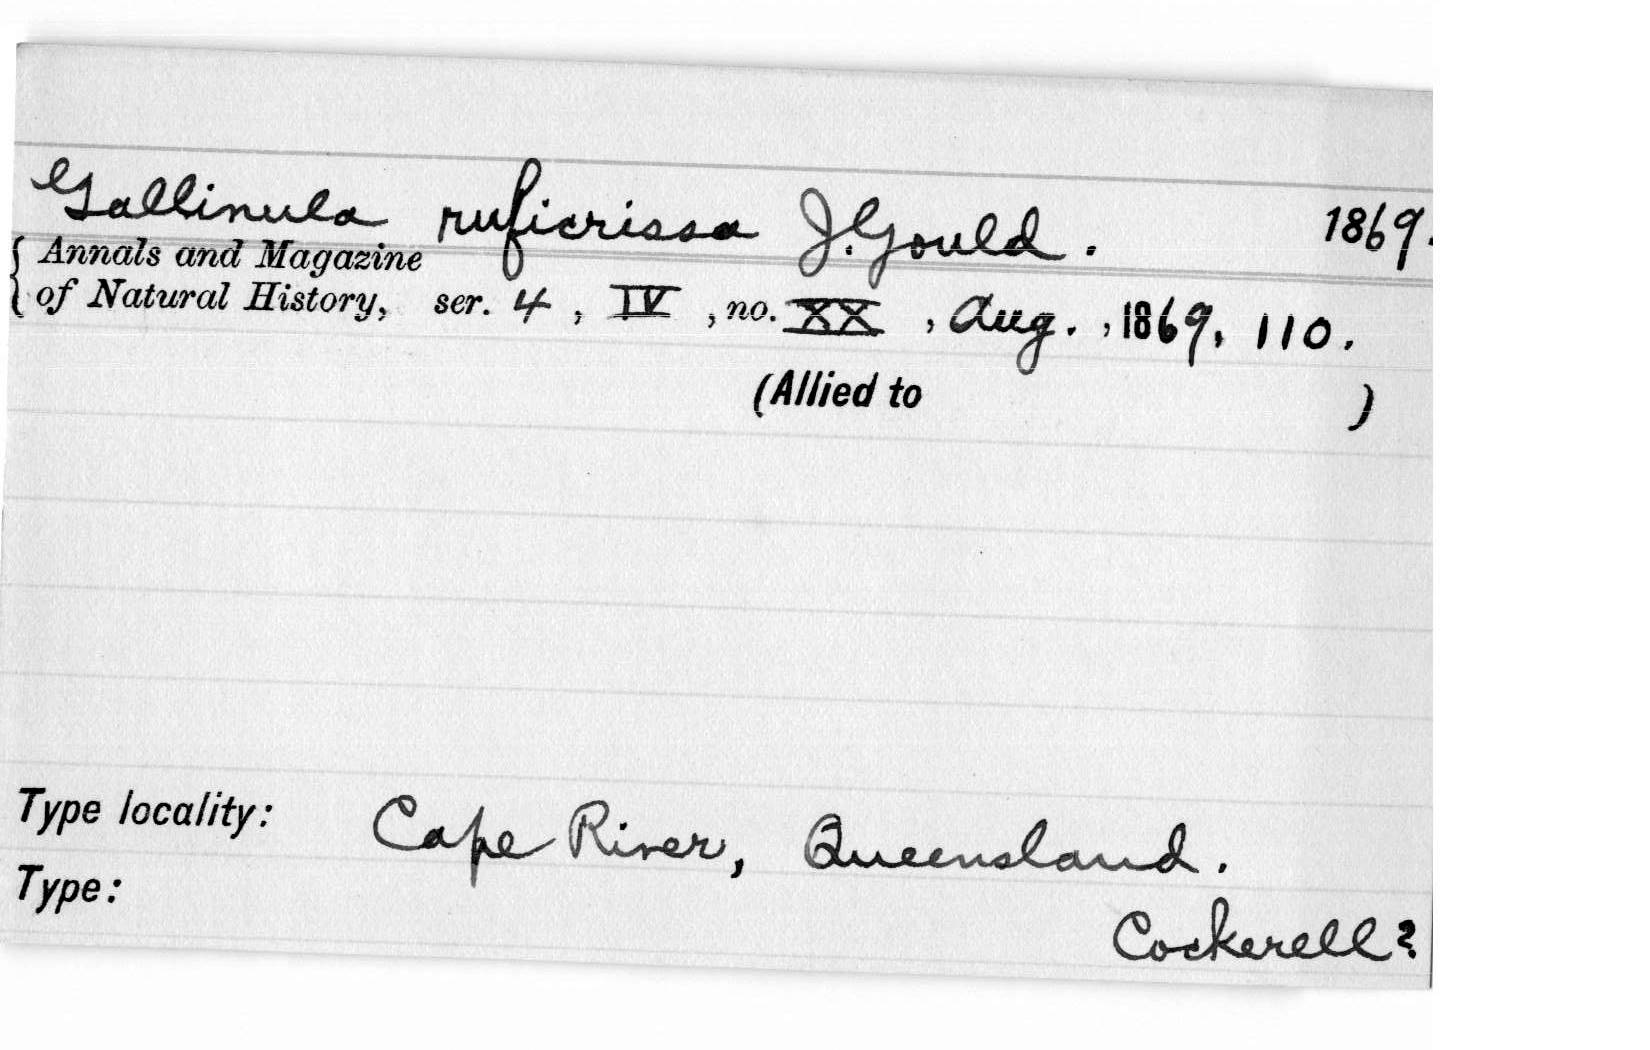 Gallinula ruficrissa J. Gould. 1869.
Annals and Magazine
of Natural History, ser. 4, IV, no. XX, Aug., 1869, 110.
(Allied to )
Type locality: Cape River, Queensland.
Type:
Cockerell?